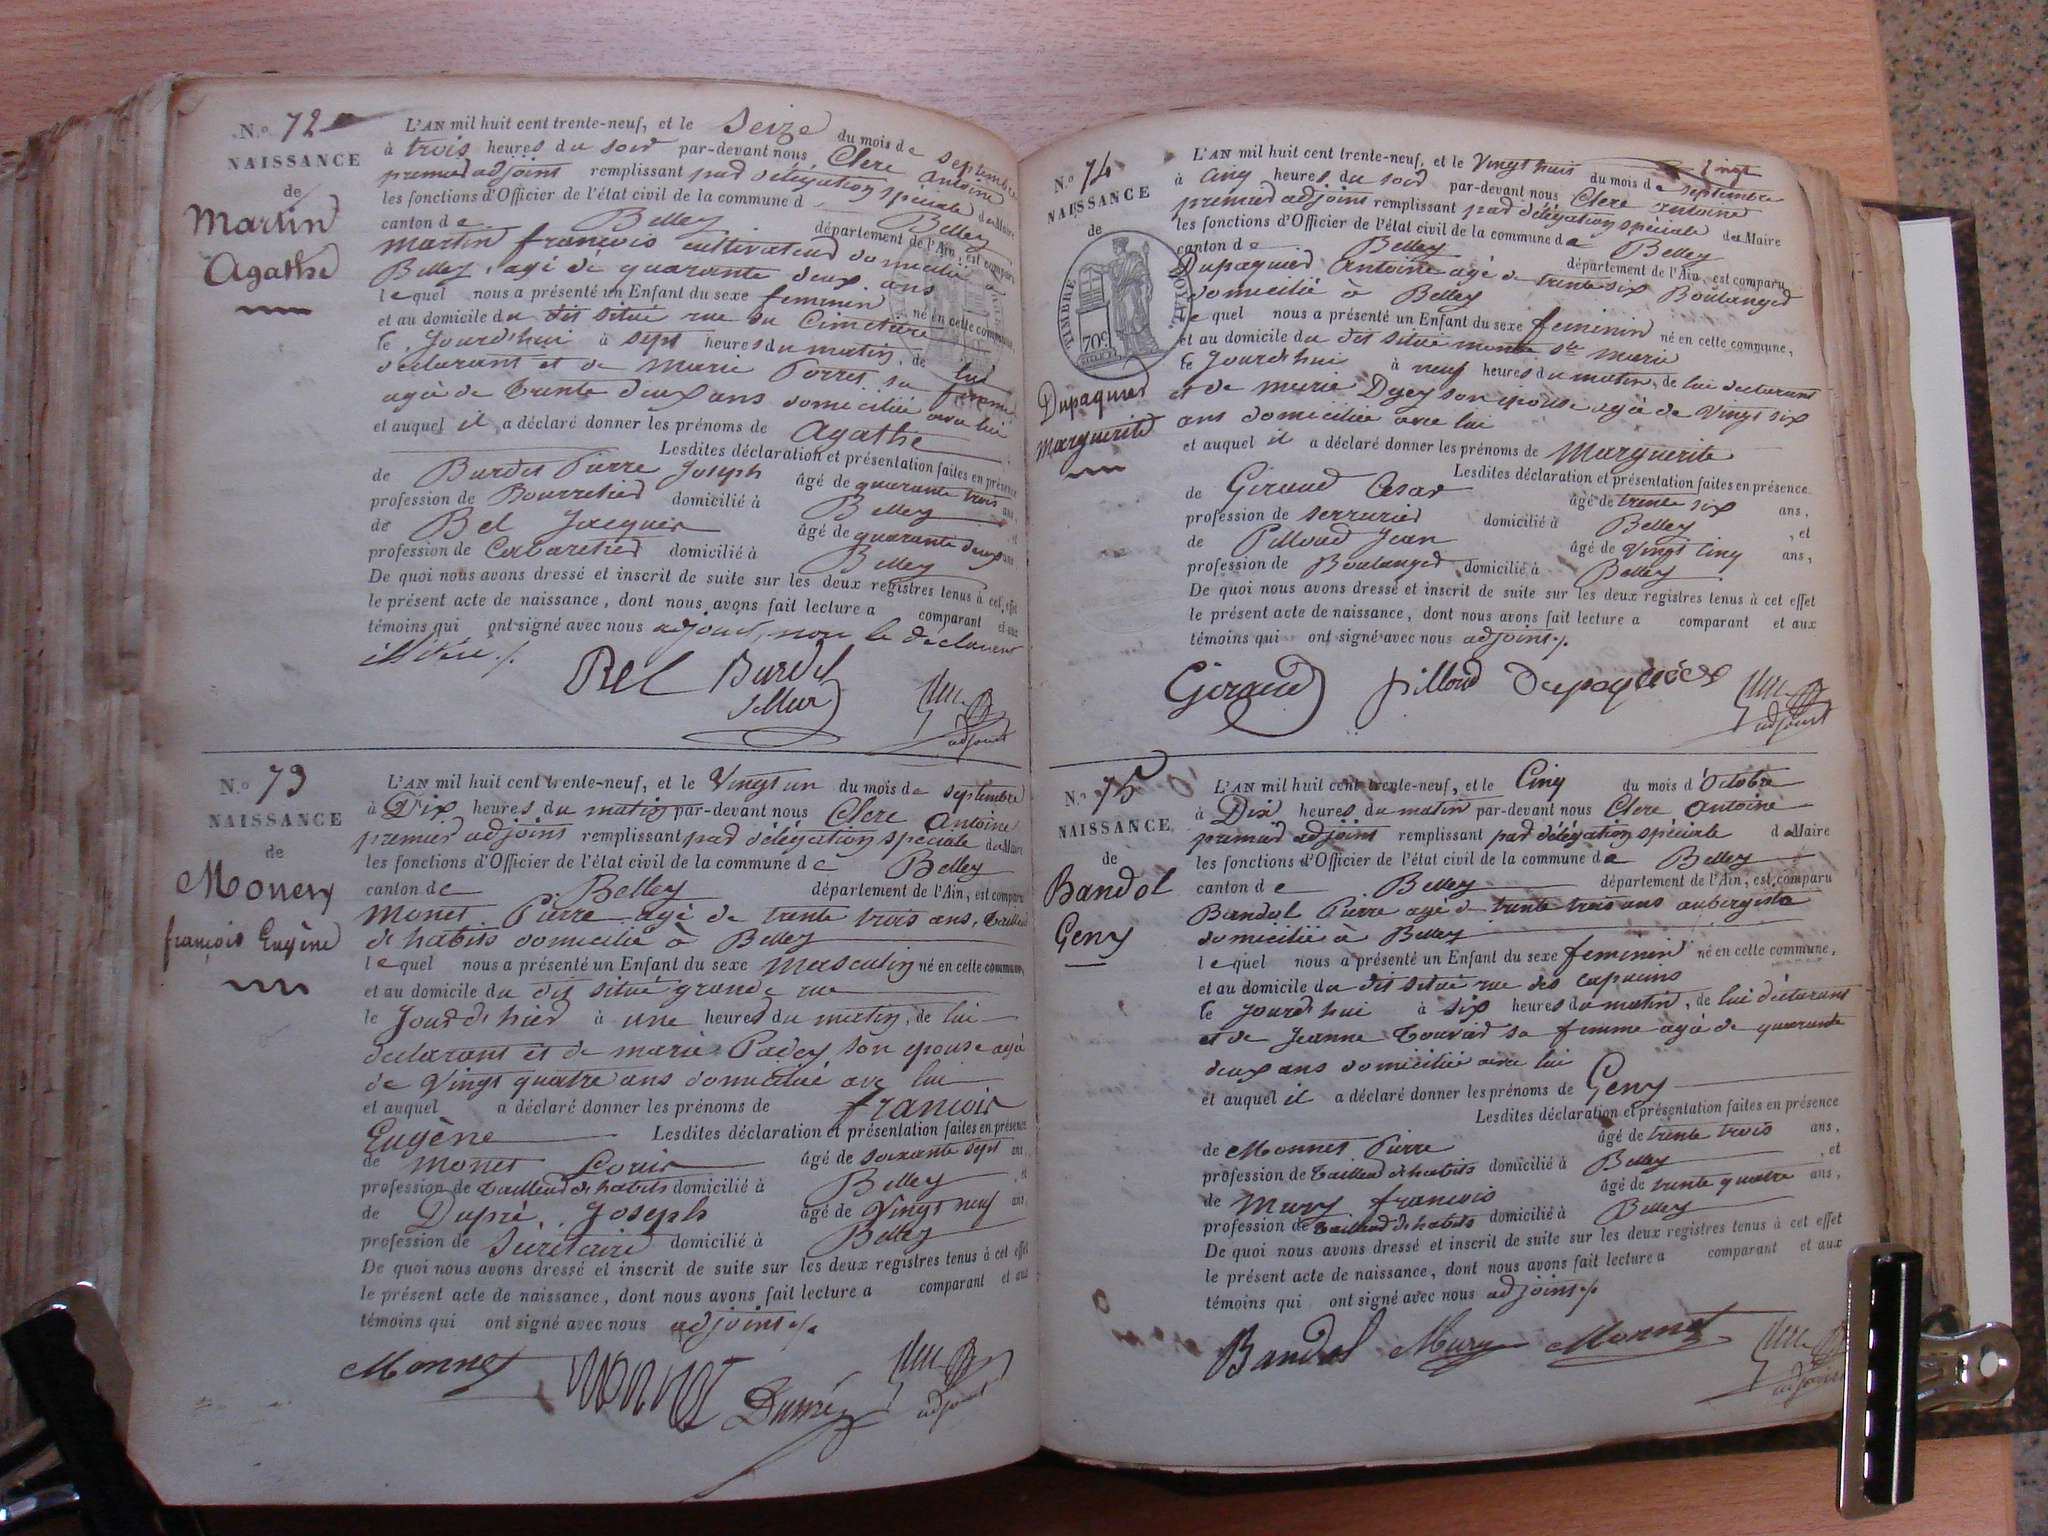 N.o 72
NAISSANCE
de
Martin
Agathe
L'AN mil huit cent trente-neuf, et le Seize du mois de septembre
à trois heures du soir par-devant nous Clerc Antoine
premier adjoint remplissant par délégation spéciale de Maire
les fonctions d'Officier de l'état civil de la commune d Belley
canton de Belley département de l'Ain, est comparu
Martin françois cultivateur domicilié à
Belley, agé de quarante deux ans
lequel nous a présenté un Enfant du sexe feminin né en cette commune,
et au domicile du dit situé rue du Cimetière
le jourd'hui à sept heures du matin, de lui
declarant et de Marie Porret sa femme
agée de trente deux ans domiciliée avec lui
et auquel il a déclaré donner les prénoms de Agathe
Lesdites déclaration et présentation faites en présence
de Burdet Pierre Joseph âgé de quarante trois ans,
profession de Bourrelier domicilié à Belley, et
de Bel Jacques âgé de quarante deux ans
profession de Cabaretier domicilié à Belley
De quoi nous avons dressé et inscrit de suite sur les deux registres tenus à cet effet
le présent acte de naissance, dont nous avons fait lecture a comparant et aux
témoins qui ont signé avec nous adjoint, non le declarant
illitéré ./.
Bel Burdet
Sellier
Clerc
adjoint
N.o 73
NAISSANCE
de
Monet
françois Eugène
L'AN mil huit cent trente-neuf, et le Vingt un du mois de septembre
à Dix heures du matin par-devant nous Clerc Antoine
premier adjoint remplissant par délégation spéciale de Maire
les fonctions d'Officier de l'état civil de la commune de Belley
canton de Belley département de l'Ain, est comparu
Monet Pierre agé de trente trois ans, tailleur
d'habits domicilié à Belley
lequel nous a présenté un Enfant du sexe Masculin né en cette commune,
et au domicile du dit situé grande rue
le jour d'hier à une heures du matin, de lui
declarant et de marie Padey son epouse agée
de Vingt quatre ans domiciliée avec lui
et auquel a déclaré donner les prénoms de françois
Eugène Lesdites déclaration et présentation faites en présence
de Monet Louis âgé de soixante sept ans,
profession de tailleur d'habits domicilié à Belley, et
de Dupré Joseph âgé de Vingt neuf ans,
profession de Secrétaire domicilié à Belley
De quoi nous avons dressé et inscrit de suite sur les deux registres tenus à cet effet
le présent acte de naissance, dont nous avons fait lecture a comparant et aux
témoins qui ont signé avec nous adjoint ./.
Monnet Monnet Dupré
Clerc
adjoint
N.o 74
NAISSANCE
de
TIMBRE ROYAL.
70c
Dupaquier
Marguerite
L'AN mil huit cent trente-neuf, et le Vingt huit du mois de septembre
à Cinq heures du soir par-devant nous Clerc Antoine
premier adjoint remplissant par délégation spéciale de Maire
les fonctions d'Officier de l'état civil de la commune de Belley
canton de Belley département de l'Ain, est comparu
Dupaquier Antoine agé de trente six Boulanger
domicilié à Belley
lequel nous a présenté un Enfant du sexe feminin né en cette commune,
et au domicile du dit situé montée Ste Marie
le jourd'hui à neuf heures du matin, de lui declarant
et de marie Dyey son epouse agée de Vingt six
ans domiciliée avec lui
et auquel il a déclaré donner les prénoms de Marguerite
Lesdites déclaration et présentation faites en présence
de Giraud Cesar âgé de trente six ans,
profession de serrurier domicilié à Belley, et
de Pilloud Jean âgé de Vingt Cinq ans,
profession de Boulanger domicilié à Belley
De quoi nous avons dressé et inscrit de suite sur les deux registres tenus à cet effet
le présent acte de naissance, dont nous avons fait lecture a comparant et aux
témoins qui ont signé avec nous adjoint ./.
Giraud pilloud Dupaquier
Clerc
adjoint
N.o 75
NAISSANCE
de
Bandol
Geny
L'AN mil huit cent trente-neuf, et le Cinq du mois d'Octobre
à Dix heures du matin par-devant nous Clerc Antoine
premier adjoint remplissant par délégation spéciale de Maire
les fonctions d'Officier de l'état civil de la commune de Belley
canton de Belley département de l'Ain, est comparu
Bandol Pierre agé de trente trois ans aubergiste
domicilié à Belley
lequel nous a présenté un Enfant du sexe feminin né en cette commune,
et au domicile du dit situé rue des capucins
le jourd'hui à six heures du matin, de lui déclarant
et de Jeanne Touvard sa femme agée de quarante
deux ans domiciliée avec lui
et auquel il a déclaré donner les prénoms de Geny
Lesdites déclaration et présentation faites en présence
de Monnet Pierre âgé de trente trois ans,
profession de tailleur d'habits domicilié à Belley, et
de Mury françois âgé de trente quatre ans,
profession de tailleur d'habits domicilié à Belley
De quoi nous avons dressé et inscrit de suite sur les deux registres tenus à cet effet
le présent acte de naissance, dont nous avons fait lecture a comparant et aux
témoins qui ont signé avec nous adjoint ./.
Bandol Mury Monnet
Clerc
adjoint